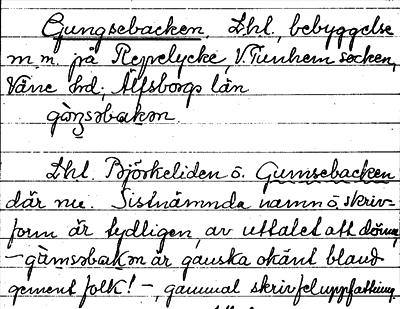 Gungsebacken, Lhl., bebyggelse
m.m. på Repelycke, V. Tunhem socken,
Väne hd, Älfsborgs län
gàŋsəbakən.
Lhl. Björkeliden o. Gumsebacken
där nu. Sistnämnda namn o. skriv-
form är tydligen, av uttalet att döma,
– gàmsəbakən är ganska okänt bland
gement folk! –, gammal skrivfeluppfattning.